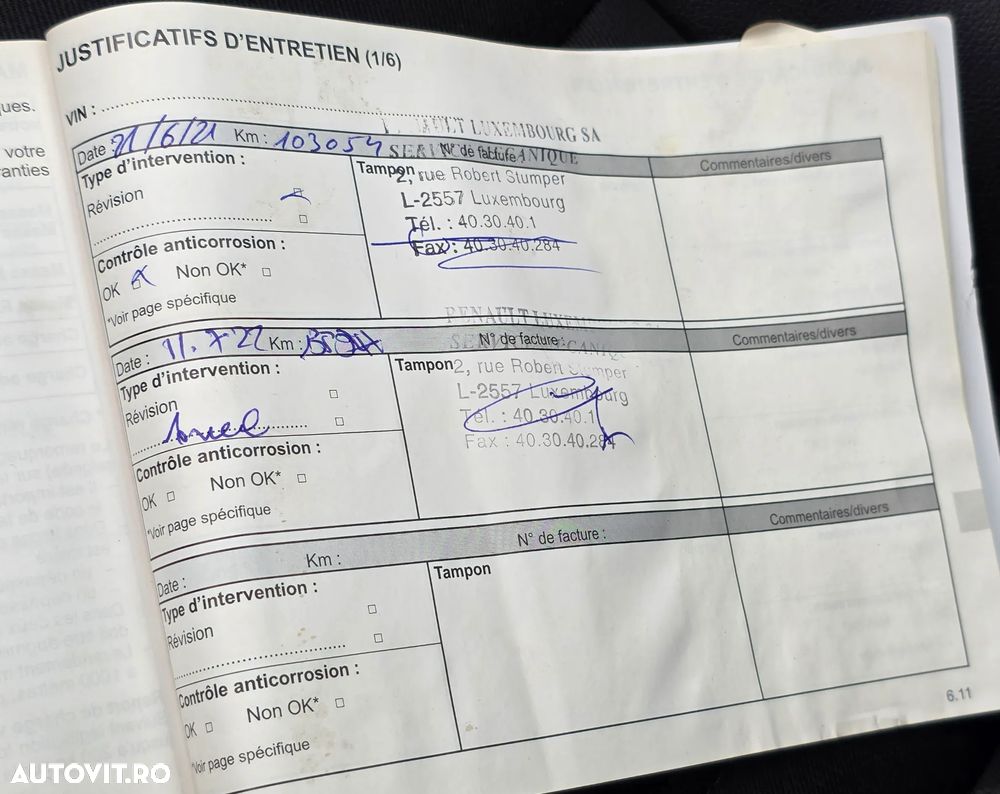 JUSTIFICATIFS D'ENTRETIEN (1/6)
ques.
votre
anties
VIN :
LUXEMBOURG SA
Date : 21/6/21 Km : 103054 N° de facture
Commentaires/divers
Type d'intervention :
Tampon
2, rue Robert Stumper
Révision
L-2557 Luxembourg
Tél. : 40.30.40.1
Contrôle anticorrosion :
Fax : 40.30.40.284
OK Non OK*
*Voir page spécifique
RENAULT LUXEM
Date : 11.722 Km : N° de facture :
Commentaires/divers
Type d'intervention :
Tampon
2, rue Robert Stumper
Révision
L-2557 Luxembourg
Tél. : 40.30.40.1
Contrôle anticorrosion :
Fax : 40.30.40.284
OK Non OK*
*Voir page spécifique
Date : Km : N° de facture :
Commentaires/divers
Type d'intervention :
Tampon
Révision
Contrôle anticorrosion :
OK Non OK*
*Voir page spécifique
6.11
AUTOVIT.RO